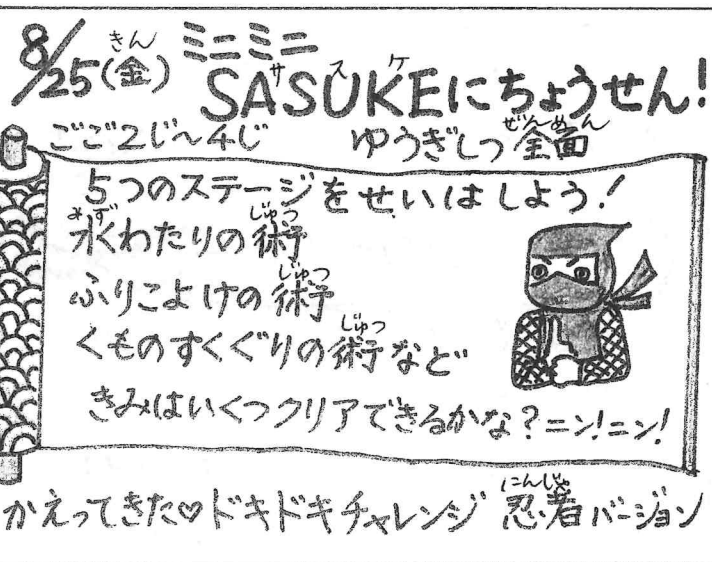 8/25(金) ミニミニ
SASUKEにちょうせん!
ごご2じ〜4じ ゆうぎしつ全面
5つのステージをせいはしよう!
水わたりの術
ふりこよけの術
くものすくぐりの術など
きみはいくつクリアできるかな?ニン!ニン!
かえってきた♡ドキドキチャレンジ 忍者バージョン